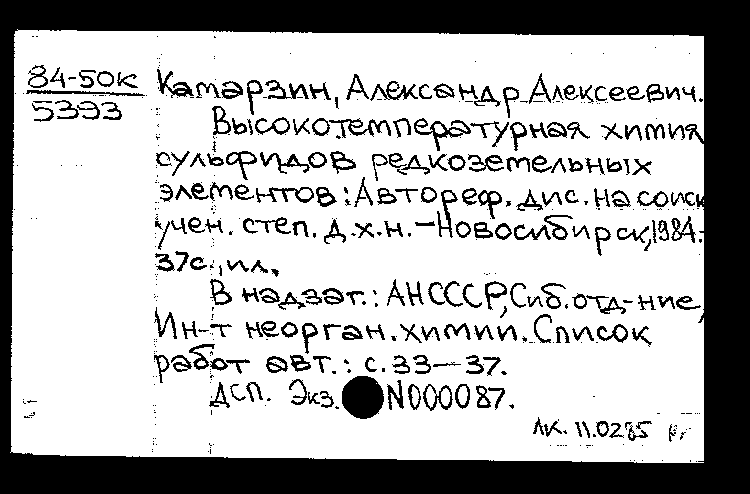 84-50К
5393
Камарзин, Александр Алексеевич.
Высокотемпературная химия
сульфидов редкоземельных
элементов: Автореф. дис. на соиск
учен. степ. д.х.н. - Новосибирск, 1984.-
37с., ил.
В надзаг.: АН СССР, Сиб. отд-ние,
Ин-т неорган. химии. Список
работ авт.: с. 33-37.
ДСП. Экз. N000087.
ЛК. 11.0285